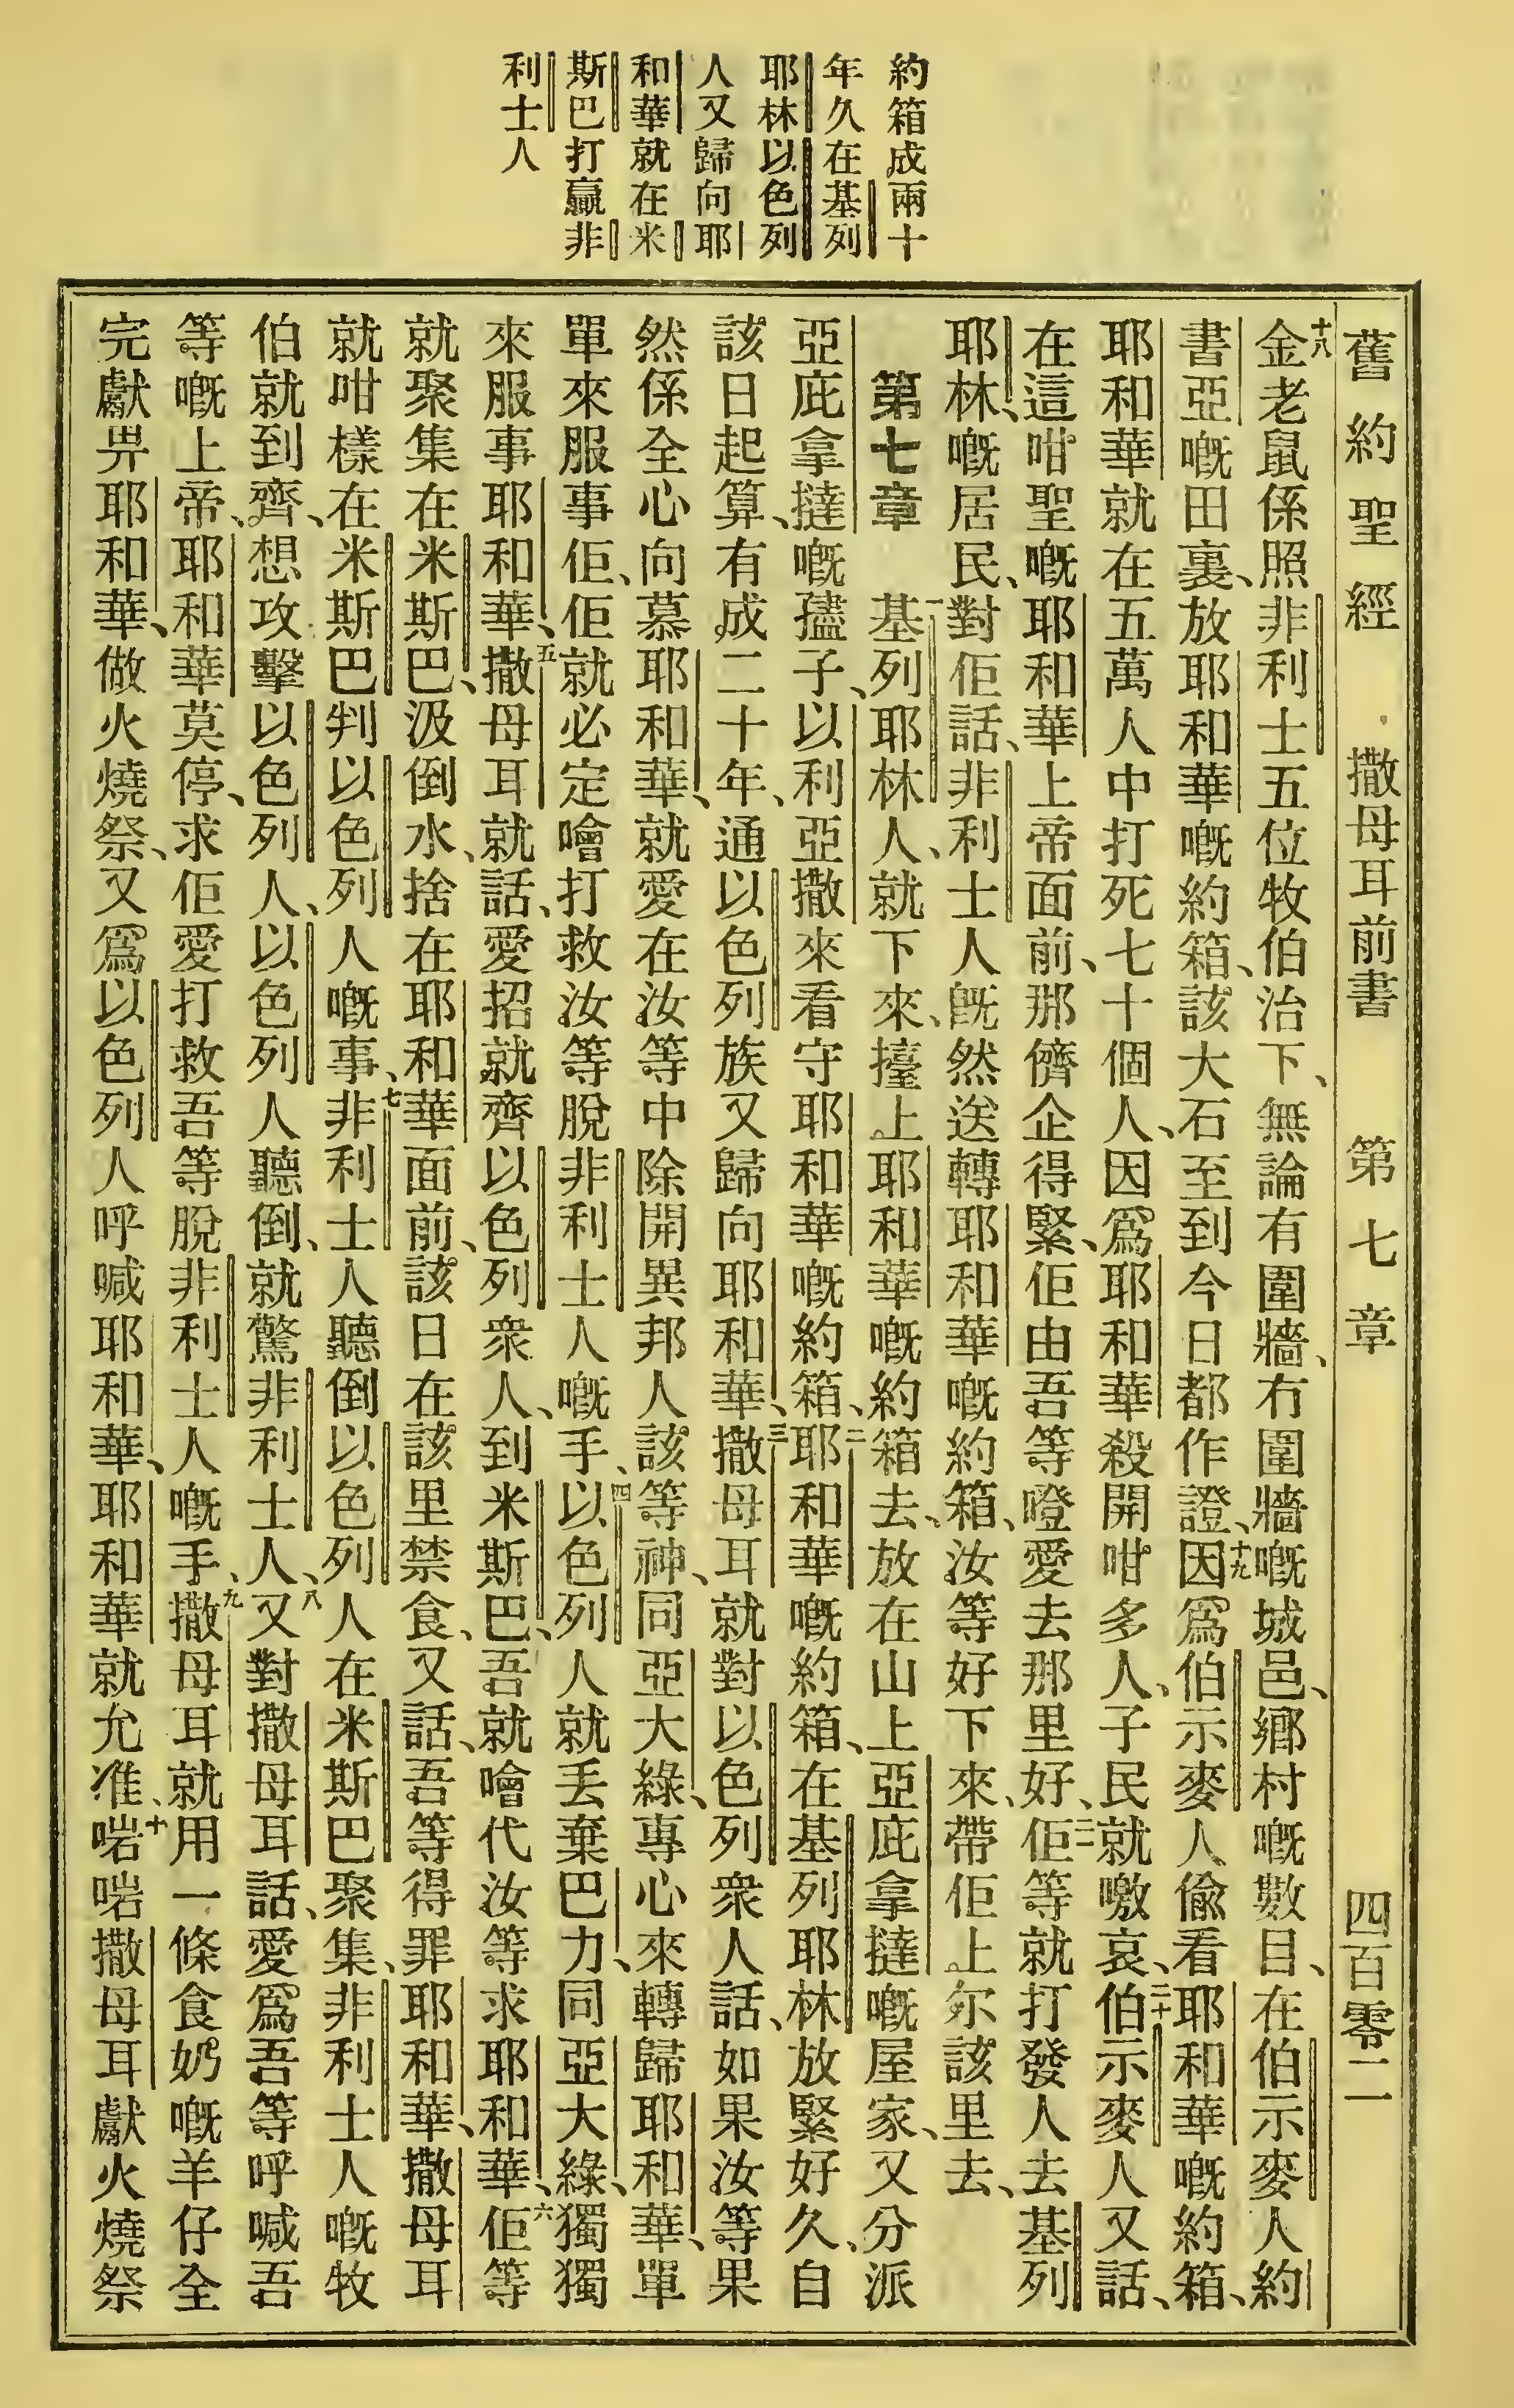 約箱成兩十
年久在基列
耶林以色列
人又歸向耶
和華就在米
斯巴打贏非
利士人
舊約聖經 撒母耳前書 第七章 四百零二
十八金老鼠係照非利士五位牧伯治下、無論有圍牆、冇圍牆嘅城邑、鄉村嘅數目、在伯示麥人約
書亞嘅田裏、放耶和華嘅約箱、該大石至到今日都作證、十九因爲伯示麥人偸看耶和華嘅約箱、
耶和華就在五萬人中打死七十個人、因爲耶和華殺開咁多人、子民就噭哀、二十伯示麥人又話、
在這咁聖嘅耶和華上帝面前、那儕企得緊、佢由吾等嶝愛去那里好、二一佢等就打發人去基列
耶林、嘅居民、對佢話、非利士人旣然送轉耶和華嘅約箱、汝等好下來、帶佢上尔該里去、
第七章 一基列耶林人、就下來、擡上耶和華嘅約箱去、放在山上亞庇拿撻嘅屋家、又分派
亞庇拿撻嘅孻子、以利亞撒來看守耶和華嘅約箱、二耶和華嘅約箱、在基列耶林放緊好久、自
該日起算、有成二十年、通以色列族又歸向耶和華、三撒母耳就對以色列衆人話、如果汝等果
然係全心向慕耶和華、就愛在汝等中除開異邦人該等神、同亞大綠、專心來轉歸耶和華、單
單來服事佢、佢就必定噲打救汝等脫非利士人嘅手、四以色列人就丢棄巴力、同亞大綠、獨獨
來服事耶和華、五撒母耳就話、愛招就齊以色列衆人、到米斯巴、吾就噲代汝等求耶和華、六佢等
就聚集在米斯巴、汲倒水、捨在耶和華面前、該日在該里禁食、又話、吾等得罪耶和華、撒母耳
就咁樣在米斯巴判以色列人嘅事、七非利士人聽倒以色列人在米斯巴聚集、非利士人嘅牧
伯就到齊、想攻擊以色列人、以色列人聽倒、就驚非利士人、八又對撒母耳話、愛爲吾等呼喊吾
等嘅上帝、耶和華莫停、求佢愛打救吾等脫非利士人嘅手、九撒母耳就用一條食奶嘅羊仔全
完獻畀耶和華、做火燒祭、又爲以色列人呼喊耶和華、耶和華就允准、十啱啱撒母耳獻火燒祭